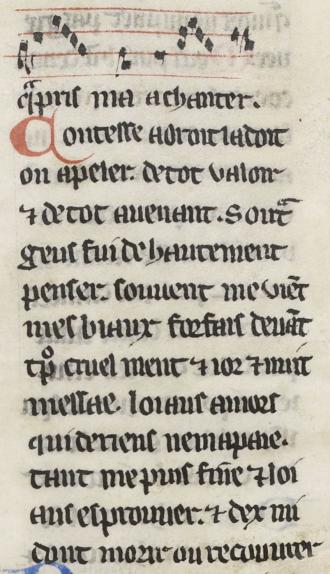 q̃ pris ma a chanter.
Contesse a droit la doit
on apeler. de tot valoir
⁊ de tot auenant. Souẽt
gens fui de hautement
penser. souuent me viẽt
mes biaux forfais deuãt
tp̊ cruel ment ⁊ ior ⁊ nuit
mesfae. loiaus amors
qui de riens ne mapaie.
tant me puis fine ⁊ loi
aus esprouuer. ⁊ dex mi
doint morir ou recouurer